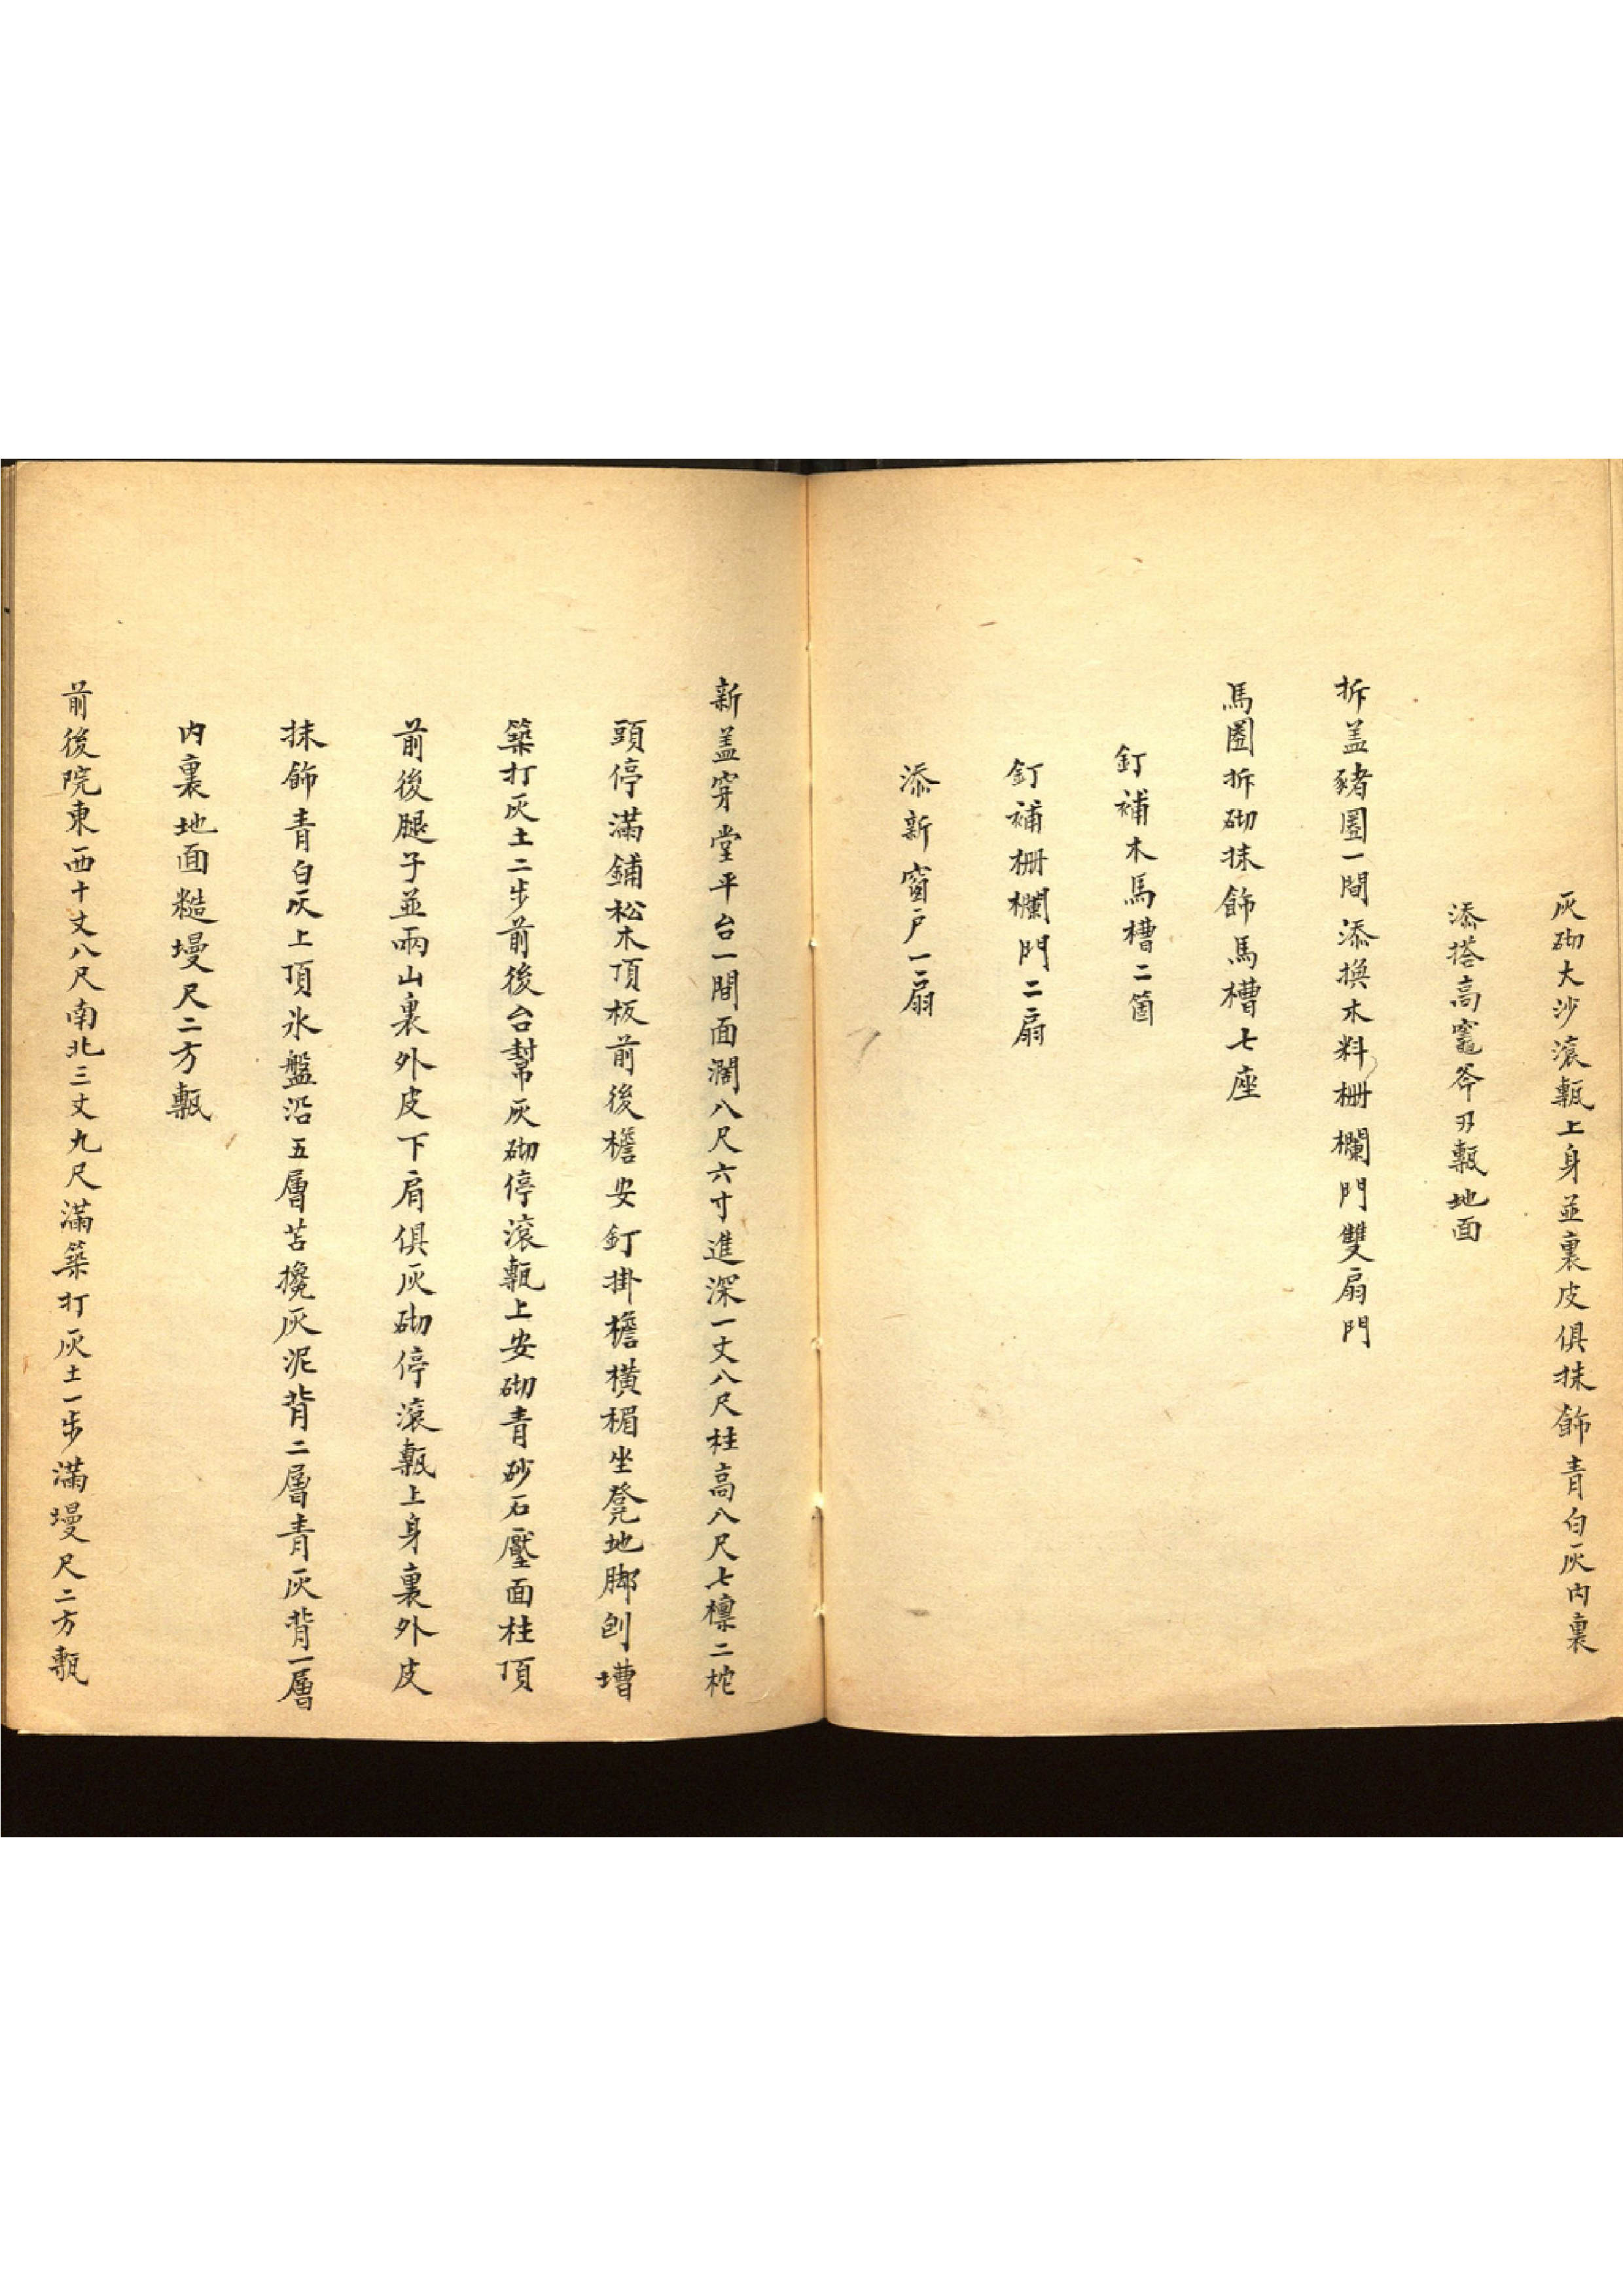 灰砌大沙滾甎上身並裏皮俱抹飾青白灰內裏
添搭高竈斧刃甎地面
拆盖豬圈一間添換木料柵欄門雙扇門
馬圈拆砌抹飾馬槽七座
釘補木馬槽二箇
釘補柵欄門二扇
添新窗戶一扇
新盖穿堂平台一間面濶八尺六寸進深一丈八尺柱高八尺七檁二柁
頭停滿鋪松木頂板前後檐安釘掛檐橫楣坐凳地脚刨槽
築打灰土二步前後台幫灰砌停滾甎上安砌青砂石壓面柱頂
前後腿子並兩山裏外皮下肩俱灰砌停滾甎上身裏外皮
抹飾青白灰上頂氷盤沿五層苫攙灰泥背二層青灰背一層
內裏地面糙墁尺二方甎
前後院東西十丈八尺南北三丈九尺滿築打灰土一步滿墁尺二方甎